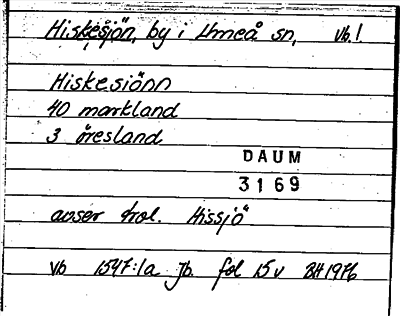 Hiskesjön, by i Umeå sn, vb.l.
Hiskesiönn
40 markland
3 öresland
DAUM
3169
avser trol. Hissjö
Vb 1547:1a Jb. fol 15 v BH 1976